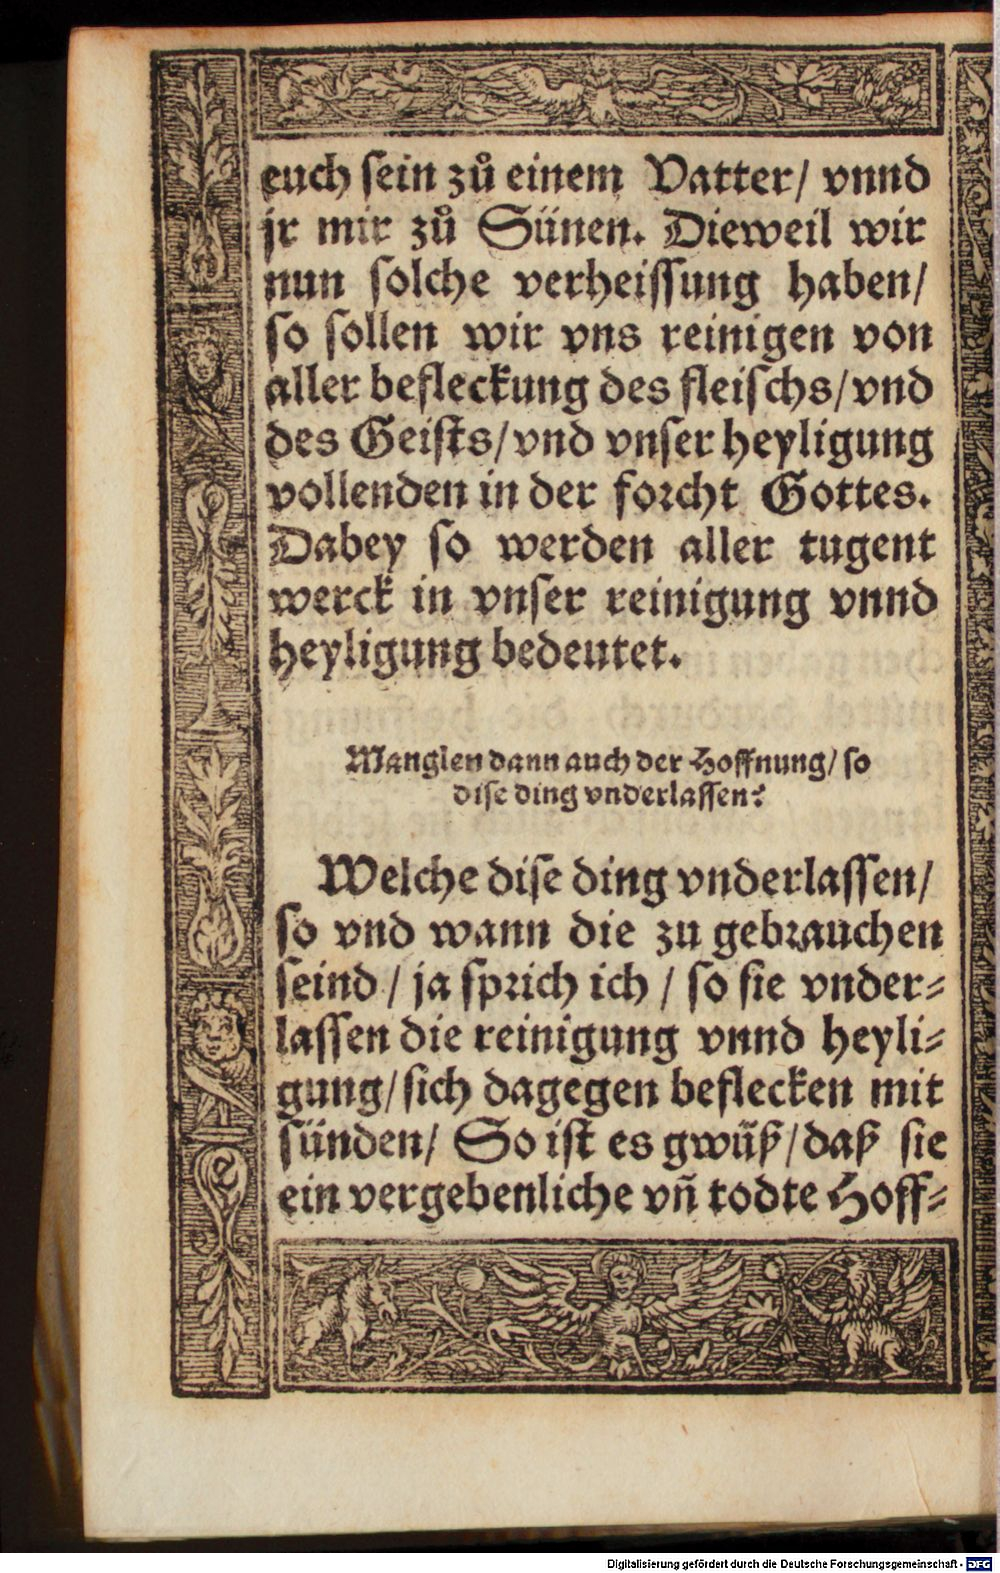 euch sein zů einem Vatter/ vnnd
jr mir zů Sünen. Dieweil wir
nun solche verheissung haben/
so sollen wir vns reinigen von
aller befleckung des fleischs/ vnd
des Geists/ vnd vnser heyligung
vollenden in der forcht Gottes.
Dabey so werden aller tugent
werck in vnser reinigung vnnd
heyligung bedeutet.
Manglen dann auch der Hoffnung/ so
dise ding vnderlassen?
Welche dise ding vnderlassen/
so vnd wann die zu gebrauchen
seind / ja sprich ich / so sie vnder-
lassen die reinigung vnnd heyli-
gung/ sich dagegen beflecken mit
sünden/ So ist es gwüß/ daß sie
ein vergebenliche vñ todte Hoff-
Digitalisierung gefördert durch die Deutsche Forschungsgemeinschaft - DFG